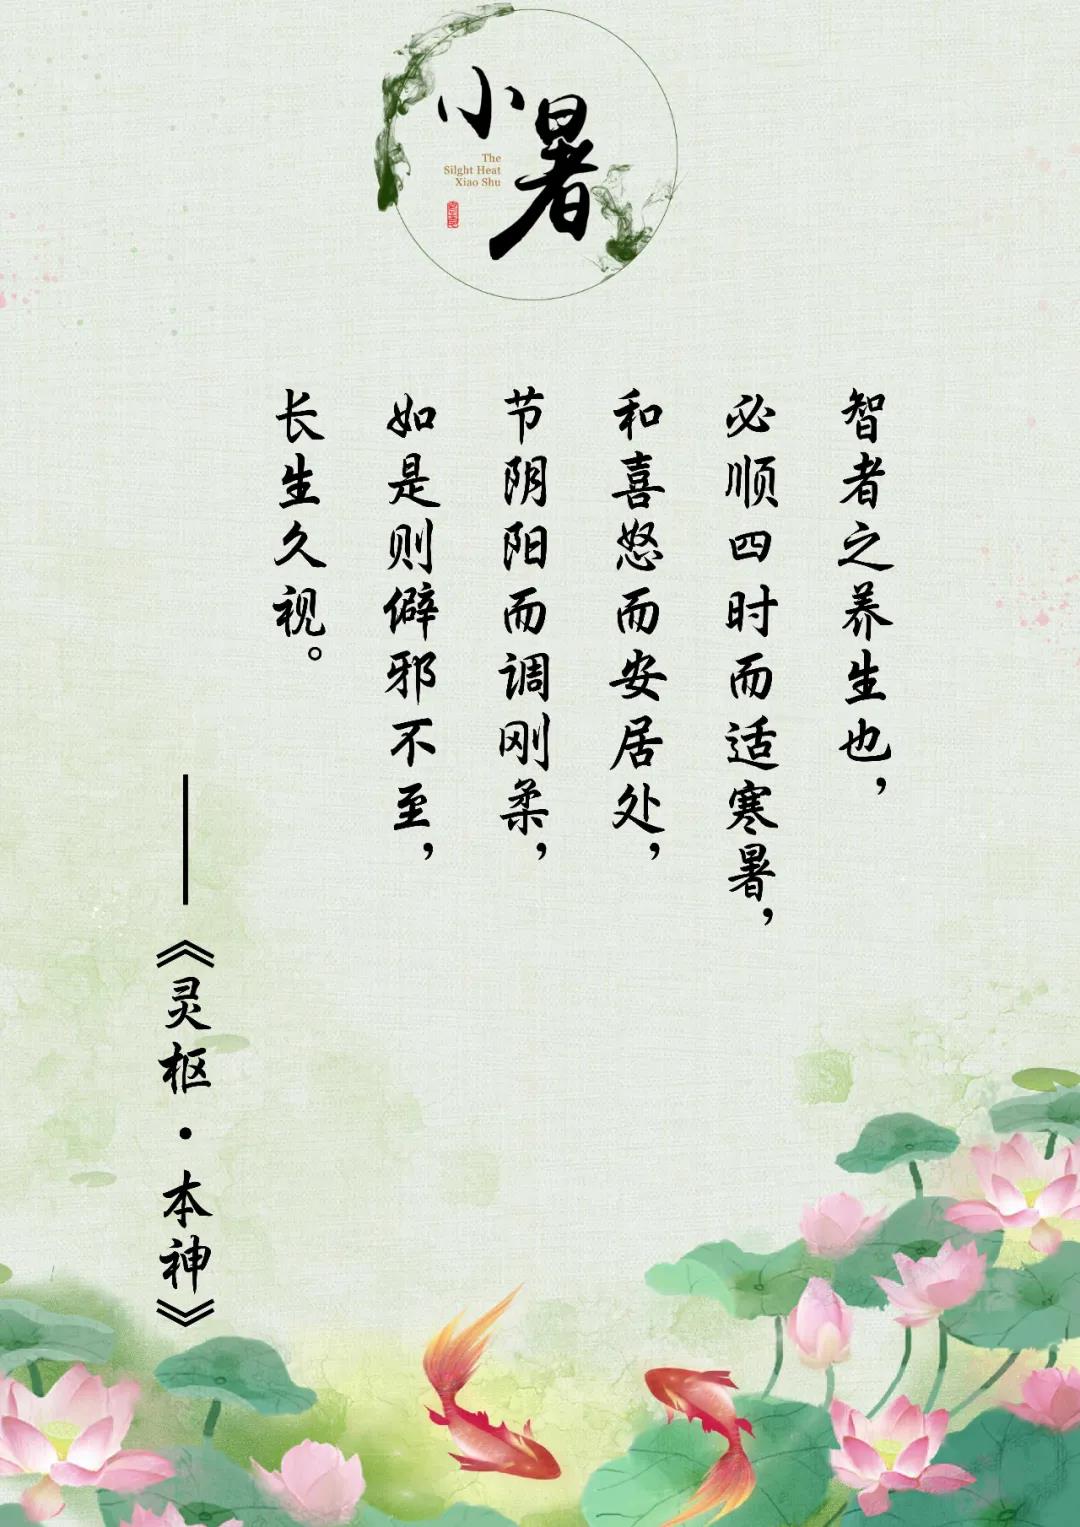 小暑
The
Silght Heat
Xiao Shu
智者之养生也，
必顺四时而适寒暑，
和喜怒而安居处，
节阴阳而调刚柔，
如是则僻邪不至，
长生久视。
——《灵枢·本神》